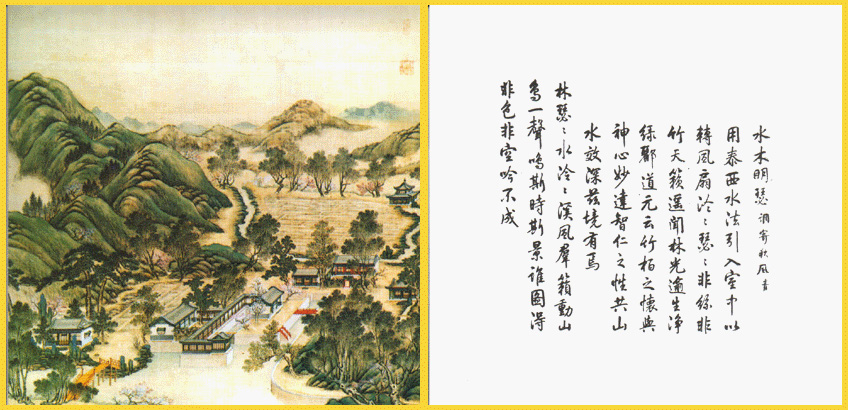 水木明瑟 調寄秋風青
用泰西水法引入室中以
轉風扇泠〻瑟〻非絲非
竹天籟遥聞林光逾生淨
綠酈道元云竹栢之懷與
神心妙達智仁之性共山
水效深茲境有焉
林瑟〻水泠〻溪風羣籟動山
鳥一聲鳴斯時斯景誰圖得
非色非空吟不成